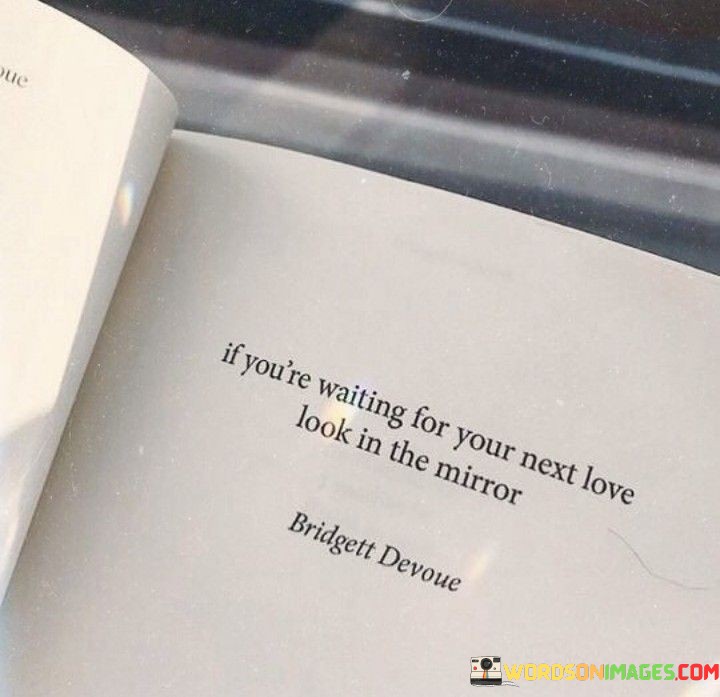 oue
if you're waiting for your next love
look in the mirror
Bridgett Devoue
WORDSONIMAGES.COM